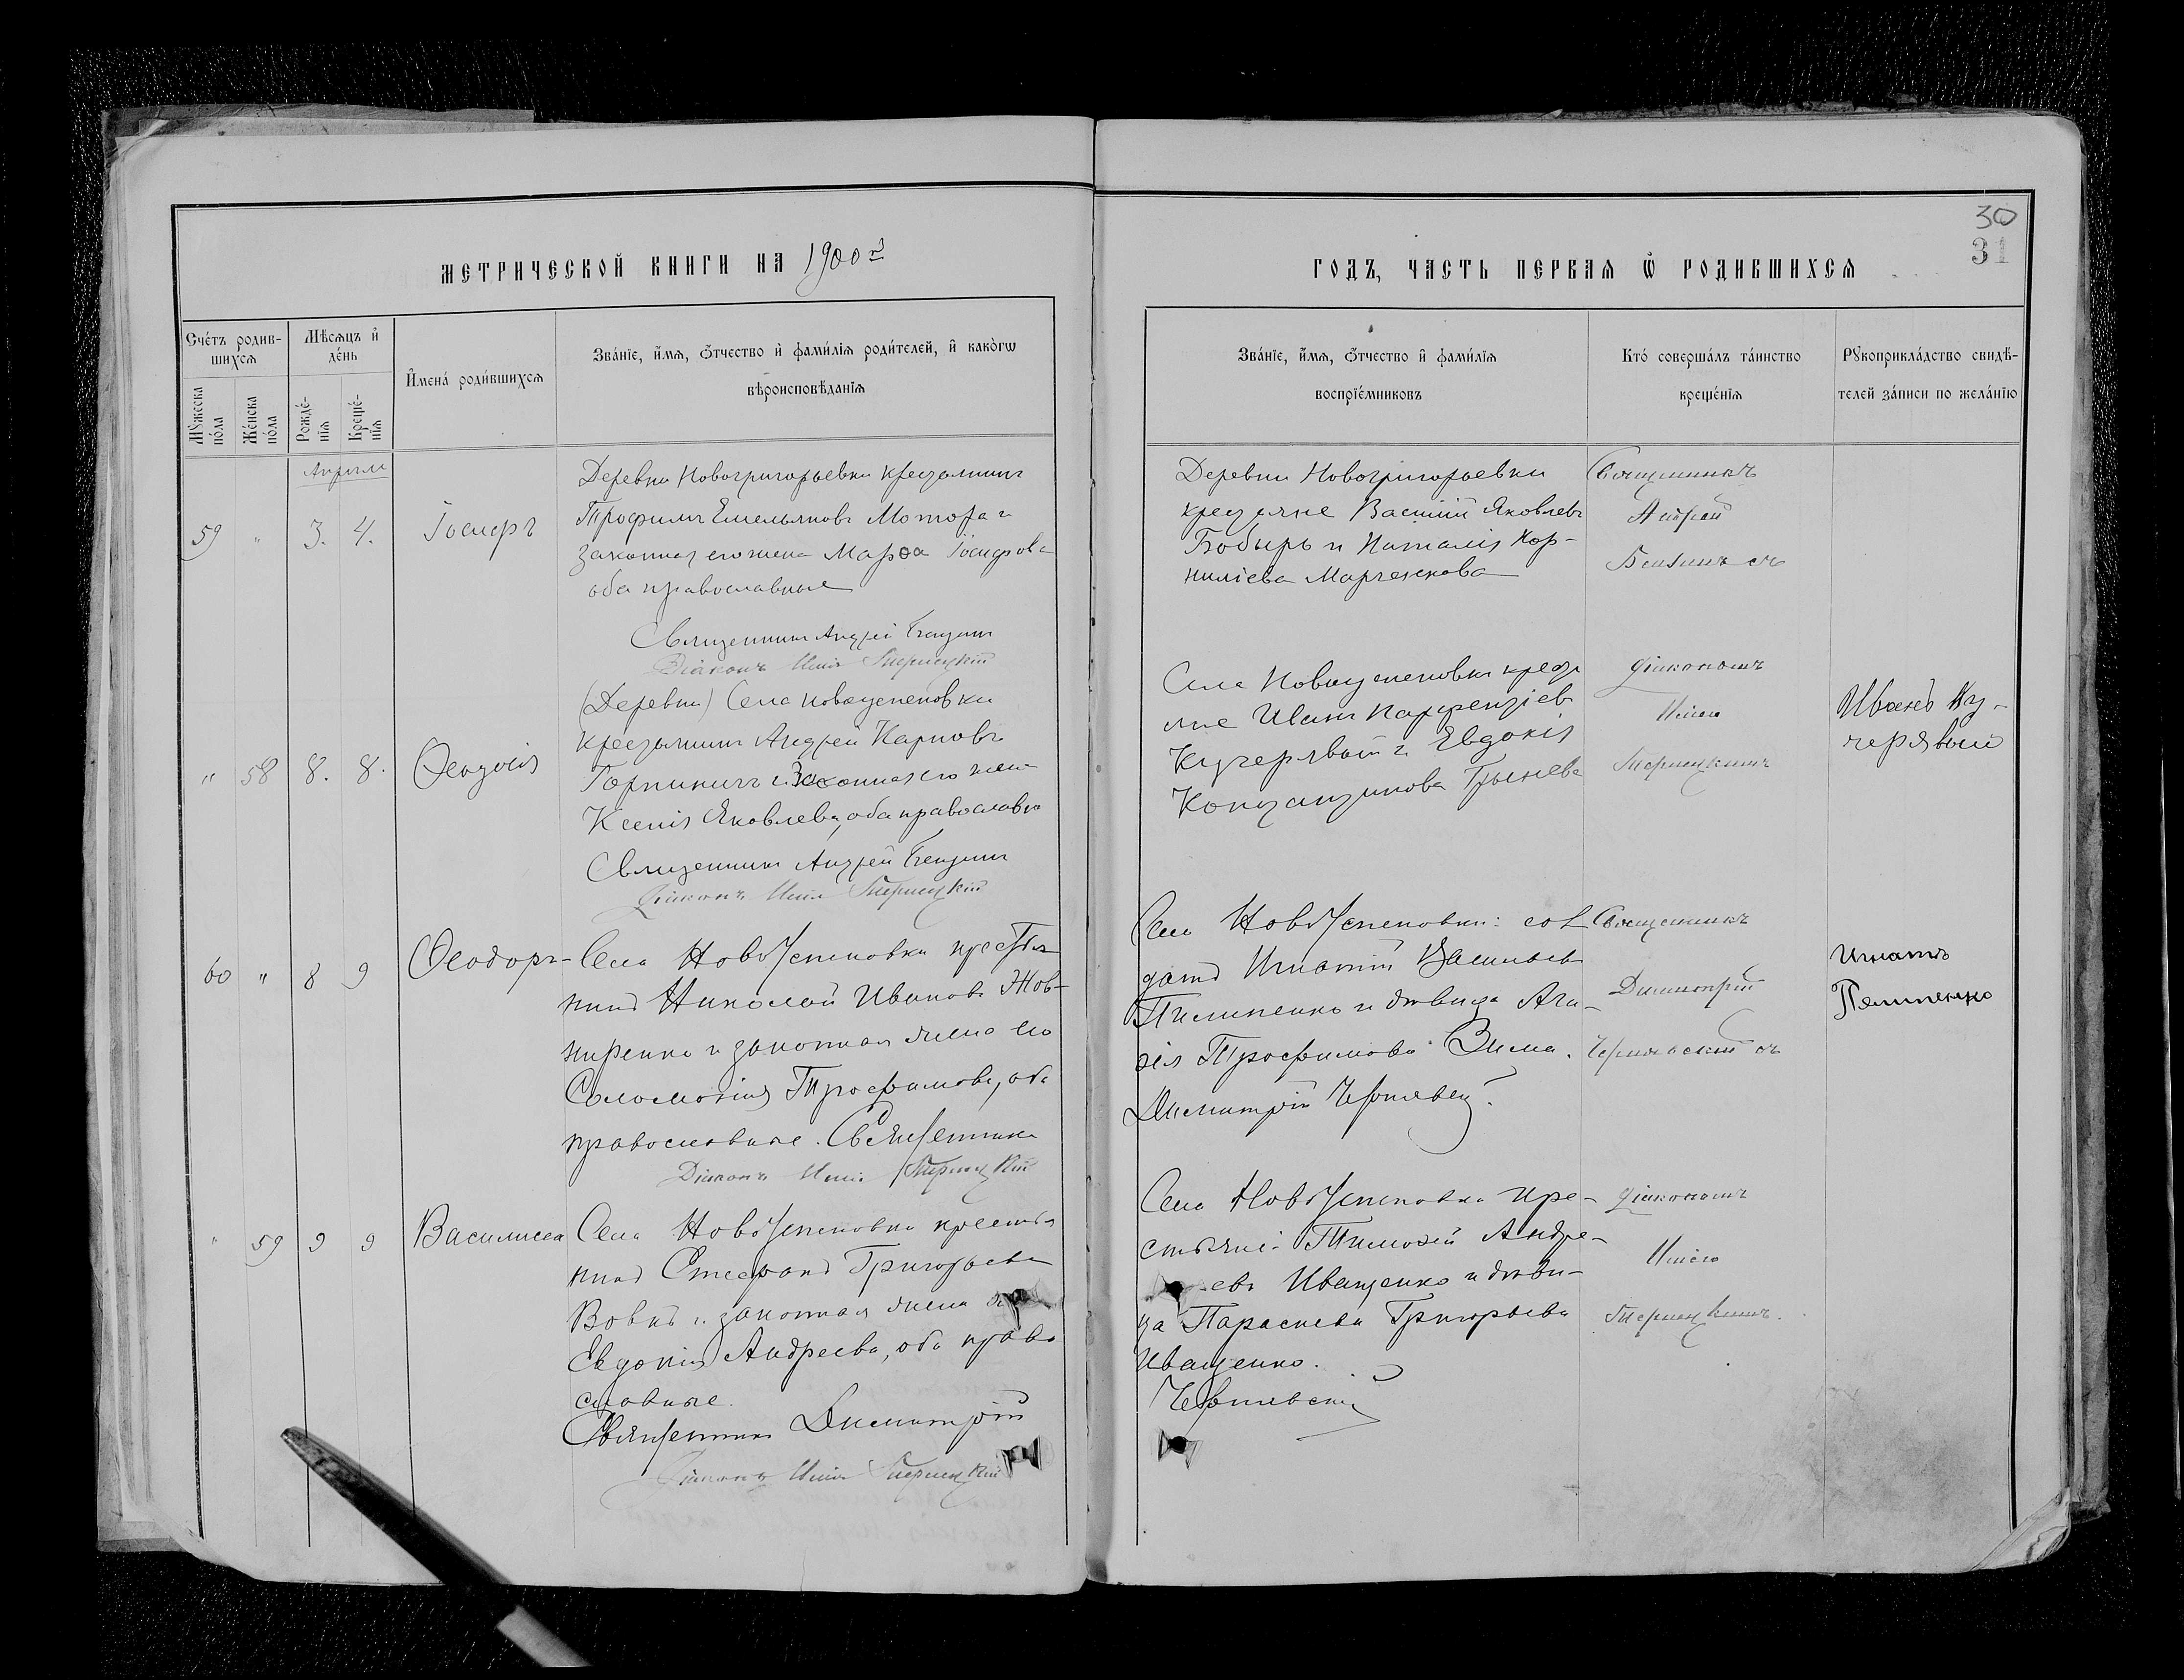 30
31
МЕТРИЧЕСКОЙ КНИГИ НА 1900й
ГОДЪ, ЧАСТЬ ПЕРВАЯ Ѿ РОДИВШИХСЯ
Счетъ родив-
шихся
Мѣсяцъ и
день
Имена родившихся
Званіе, имя, отчество и фамилія родителей, и какого
вѣроисповѣданія
Мужеска
пола
Женска
пола
Рожде-
нія
Креще-
нія
Званіе, имя, отчество и фамилія
воспріемниковъ
Кто совершалъ таинство
крещенія
Рукоприкладство свидѣ-
телей записи по желанію
Апрѣль
59 " 3. 4. Іосифъ
Деревни Новогригорьевки крестьянинъ
Трофимъ Емельяновъ Мотора и
законная его жена Марѳа Іосифова
оба православные
Священникъ Андрей
Діаконъ Илія
Деревни Новогригорьевки
крестьяне Василій Яковлевъ
Бобырь и Наталія Кор-
ниліева Марченкова
Священникъ
Андрей
" 58 8. 8. Ѳеодосія
(Деревни) Села Новоуспеновки
крестьянинъ Андрей Карповъ
Горпиничъ и законная его жена
Ксенія Яковлева, оба православн
Священникъ Андрей
Діаконъ Илія
Села Новоуспеновки кресть
яне Иванъ Парфентіев
Кучерявый и Евдокія
Константинова Грынева
Діакономъ
Иліею
Иванъ Ку-
черявый
60 " 8 9 Ѳеодоръ
Села НовоУспеновки крестья
нинъ Николай Ивановъ Жов-
ниренко и законная жена его
Соломонія Трофимова, оба
православные. Священникъ
Діаконъ Илія
Села НовоУспеновки: сол
датъ Игнатій Васильевъ
Пилипенко и дѣвица Ага-
ѳія Трофимова Зима.
Димитрій Чернявск
Священникъ
Димитрій
Чернявскій
Игнатъ
Пилипенко
" 59 9 9 Василисса
Села НовоУспеновки крестья
нинъ Стефанъ Григорьевъ
Вовкъ и законная жена
Евдокія Андреева, оба право
славные.
Священникъ Димитрій
Діаконъ Илія
Села НовоУспеновки кре-
стьяне: Тимоѳей Андре-
евъ Иващенко и дѣви-
ца Параскева Григорьева
Иващенко.
Чернявскій
Діакономъ
Иліею